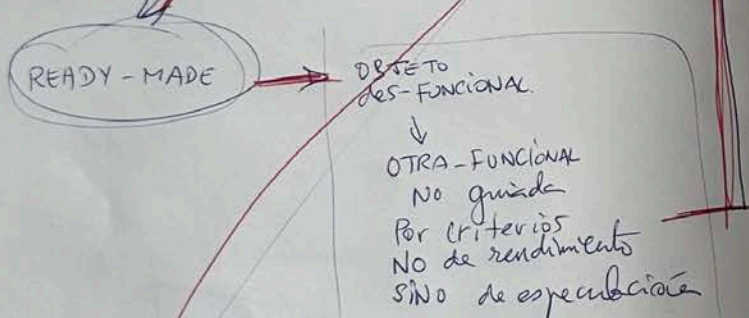 READY-MADE
OBJETO
des-FUNCIONAL.
OTRA-FUNCIONAL
No guiada
Por criterios
NO de rendimiento
SINO de especulación